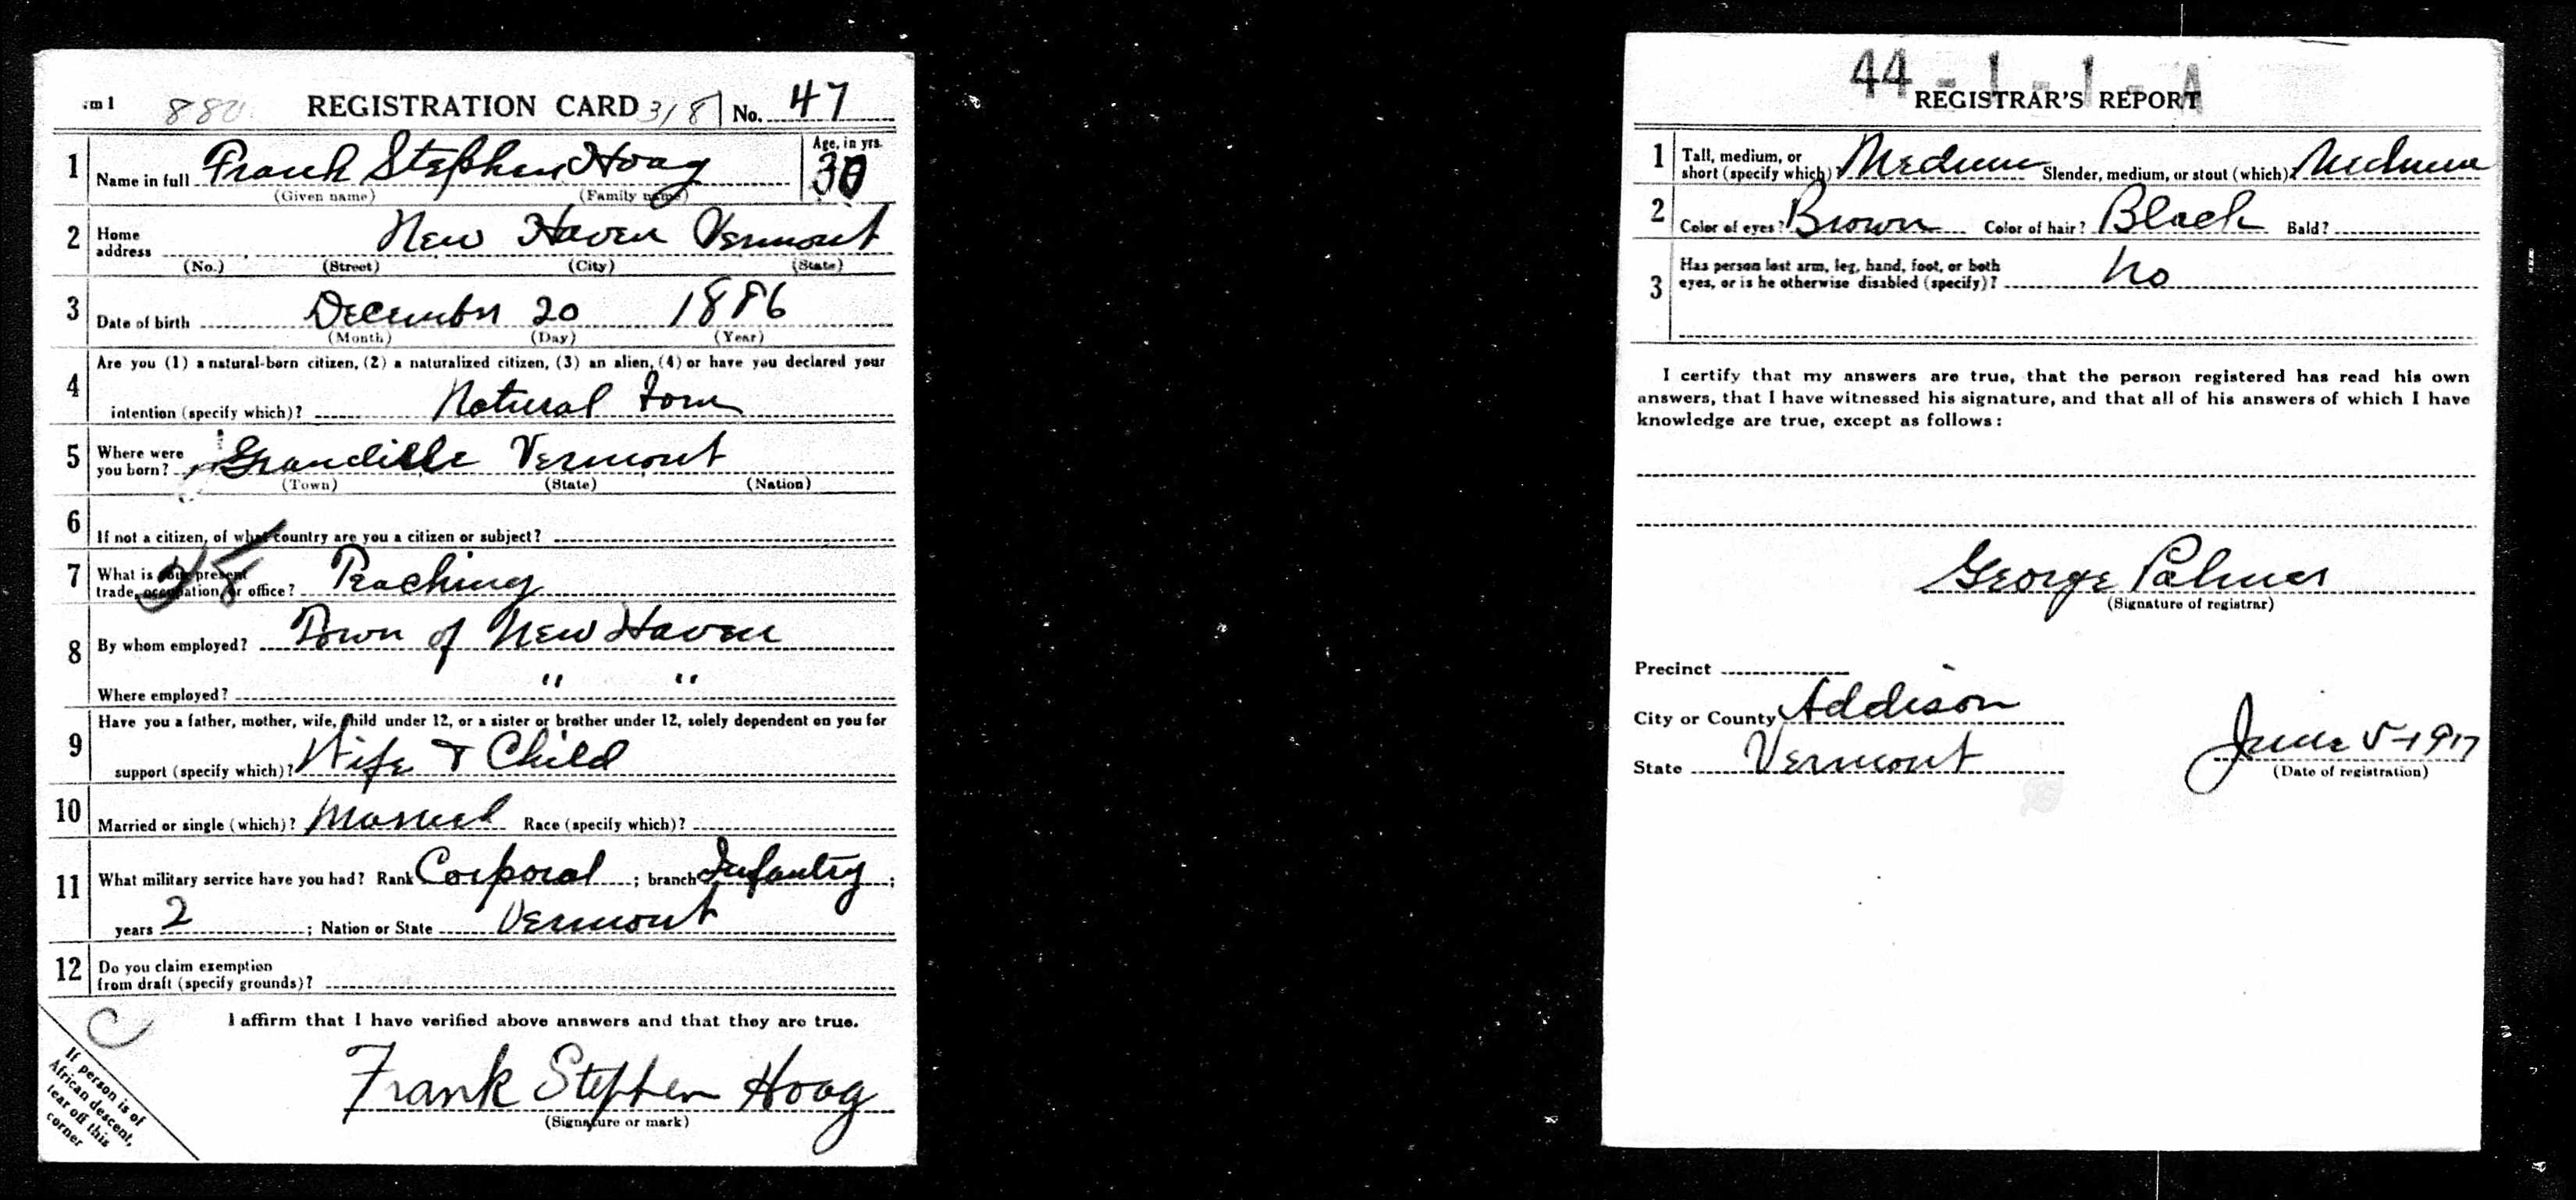 m 1 880 REGISTRATION CARD 3181 No. 47
1 Name in full Frank Stephen Hoag Age, in yrs. 30
(Given name) (Family name)
2 Home address New Haven Vermont
(No.) (Street) (City) (State)
3 Date of birth December 20 1886
(Month) (Day) (Year)
4 Are you (1) a natural-born citizen, (2) a naturalized citizen, (3) an alien, (4) or have you declared your
intention (specify which)? Natural born
5 Where were you born? Granville Vermont
(Town) (State) (Nation)
6 If not a citizen, of what country are you a citizen or subject?
7 What is your present trade, occupation, or office? Teaching
8 By whom employed? Town of New Haven
Where employed? " "
9 Have you a father, mother, wife, child under 12, or a sister or brother under 12, solely dependent on you for
support (specify which)? Wife & Child
10 Married or single (which)? Married Race (specify which)?
11 What military service have you had? Rank Corporal ; branch Infantry ;
years 2 ; Nation or State Vermont
12 Do you claim exemption
from draft (specify grounds)?
C
I affirm that I have verified above answers and that they are true.
Frank Stephen Hoag
(Signature or mark)
If person is of
African descent,
tear off this
corner
44 - 1 - 1 - A
REGISTRAR'S REPORT
1 Tall, medium, or short (specify which)? Medium Slender, medium, or stout (which)? Medium
2 Color of eyes? Brown Color of hair? Black Bald?
3 Has person lost arm, leg, hand, foot, or both
eyes, or is he otherwise disabled (specify)? no
I certify that my answers are true, that the person registered has read his own
answers, that I have witnessed his signature, and that all of his answers of which I have
knowledge are true, except as follows:
George Palmer
(Signature of registrar)
Precinct
City or County Addison
State Vermont
June 5 - 1917
(Date of registration)